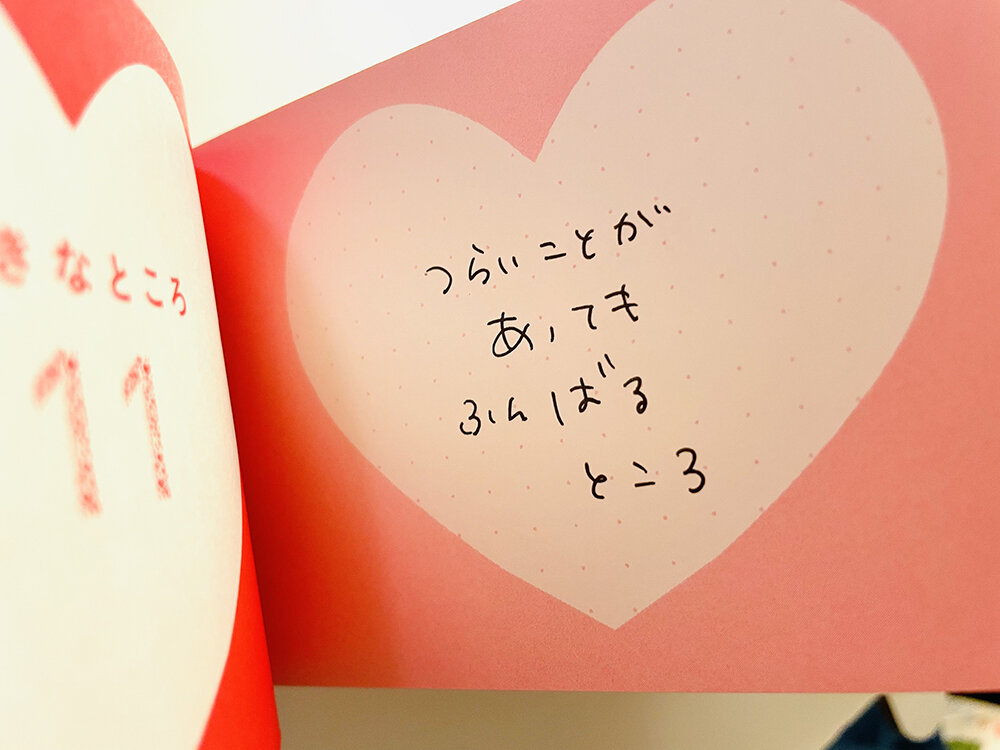 きなところ
11
つらいことが
あっても
ふんばる
ところ